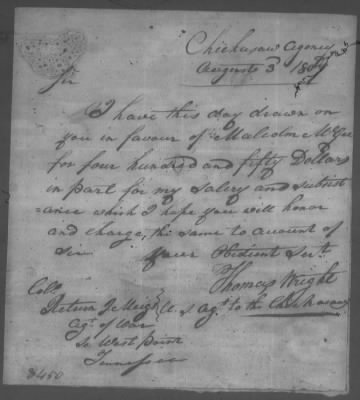 Chickasaw Agency
Augusts 3d 180
Sir
I have this day drawn on
you in favour of Malcolm McGee
for four hundred and fifty Dollars
in part for my Salery and subsist
ance which I hope you will honor
and charge, the same to account of
Sir your Obedient Servt.
Thomas Wright
Colo.
Return J Meigs U. S. Agt. to the Chickasaws
Agt. of War
So West Point
Tennessee
$450